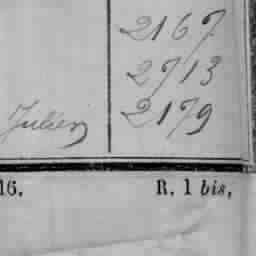 2167
2713
Julien 2179
16. R. 1 bis,